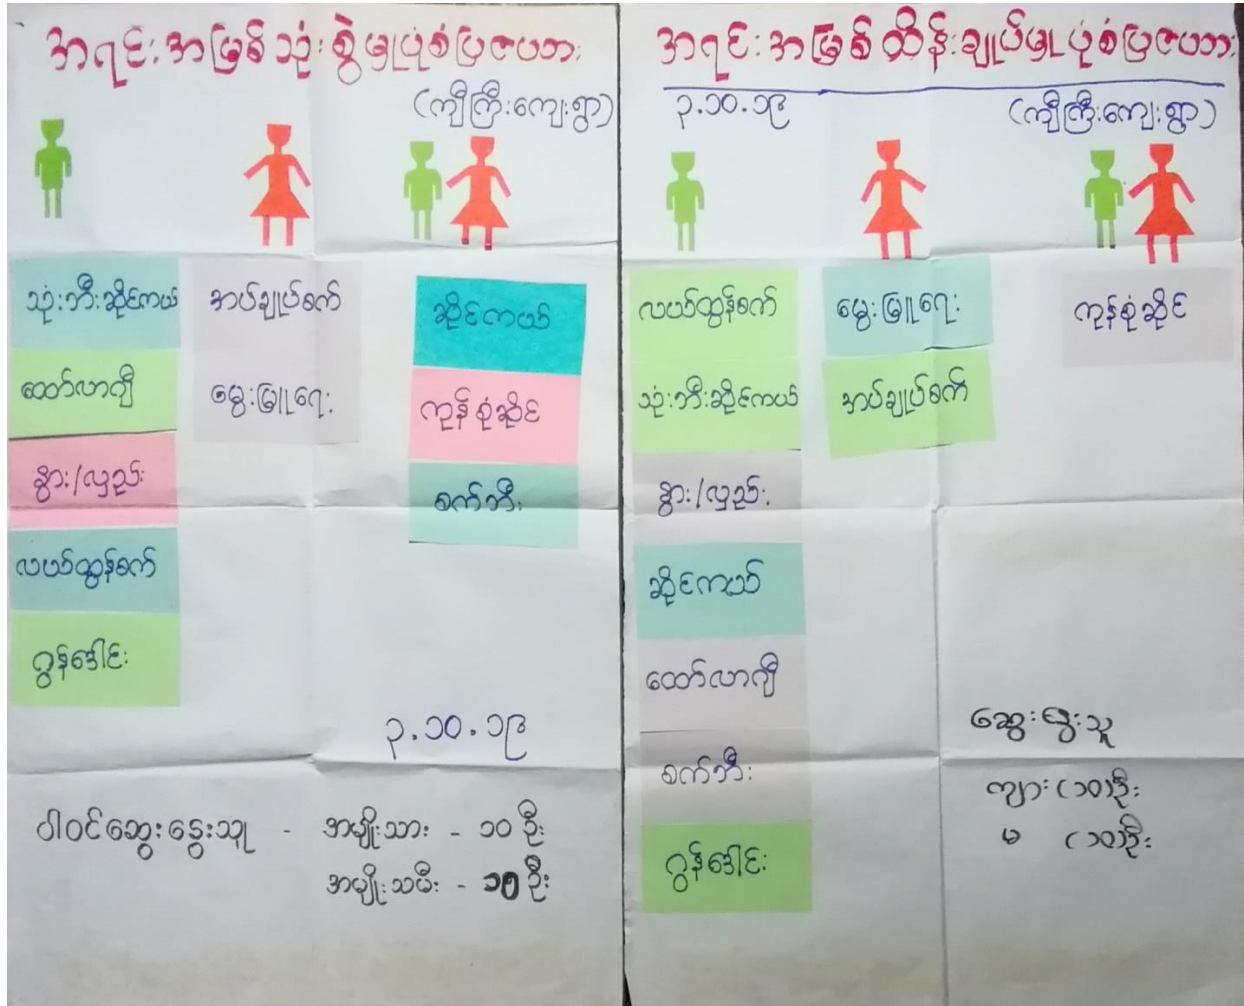 အရင်းအမြစ်သုံးစွဲမှုပုံစံပြဇယား
(ကျီကြီးကျေးရွာ)
သုံးဘီးဆိုင်ကယ်
ထော်လာဂျီ
နွား/လှည်း
လယ်ထွန်စက်
ဂွန်ဒေါင်း
အပ်ချုပ်စက်
မွေးမြူရေး
ဆိုင်ကယ်
ကုန်စုံဆိုင်
စက်ဘီး
၃.၁၀.၁၉
ပါဝင်ဆွေးနွေးသူ - အမျိုးသား - ၁၀ ဦး
အမျိုးသမီး - ၁၅ ဦး
အရင်းအမြစ်ထိန်းချုပ်မှုပုံစံပြဇယား
၃.၁၀.၁၉ (ကျီကြီးကျေးရွာ)
လယ်ထွန်စက်
သုံးဘီးဆိုင်ကယ်
နွား/လှည်း
ဆိုင်ကယ်
ထော်လာဂျီ
စက်ဘီး
ဂွန်ဒေါင်း
မွေးမြူရေး
အပ်ချုပ်စက်
ကုန်စုံဆိုင်
ဆွေးနွေးသူ
ကျား (၁၀)ဦး
မ (၁၀)ဦး